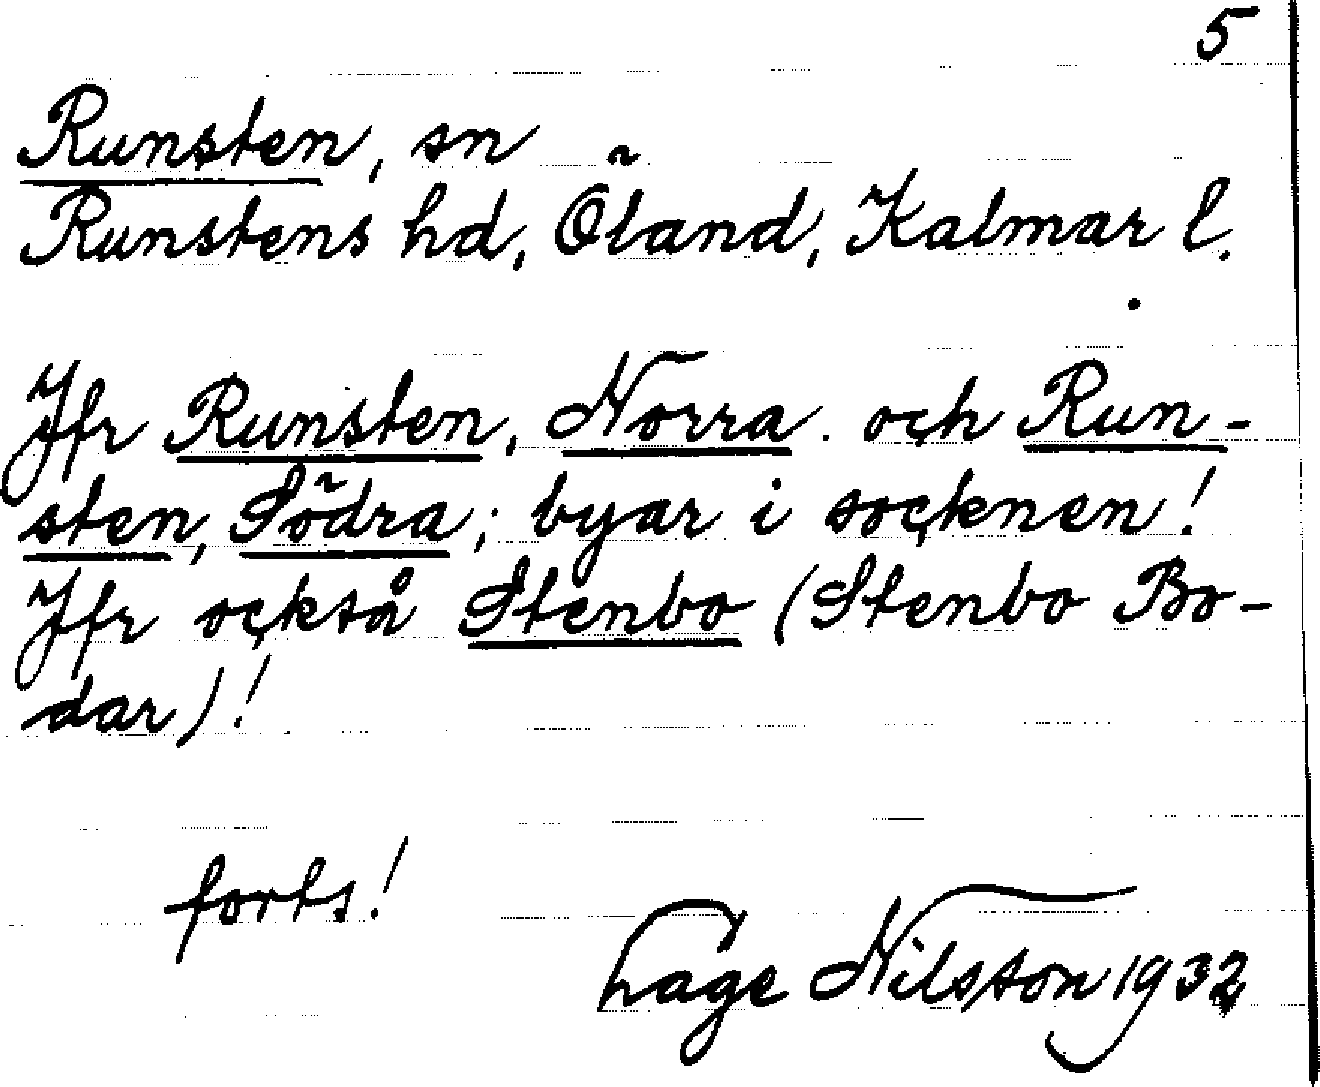 5
Runsten, sn
Runstens hd, Öland, Kalmar l.
Jfr Runsten, Norra. och Run-
sten, Södra; byar i socknen!
Jfr också Stenbo (Stenbo Bo-
dar)!
forts!
Lage Nilsson 1932